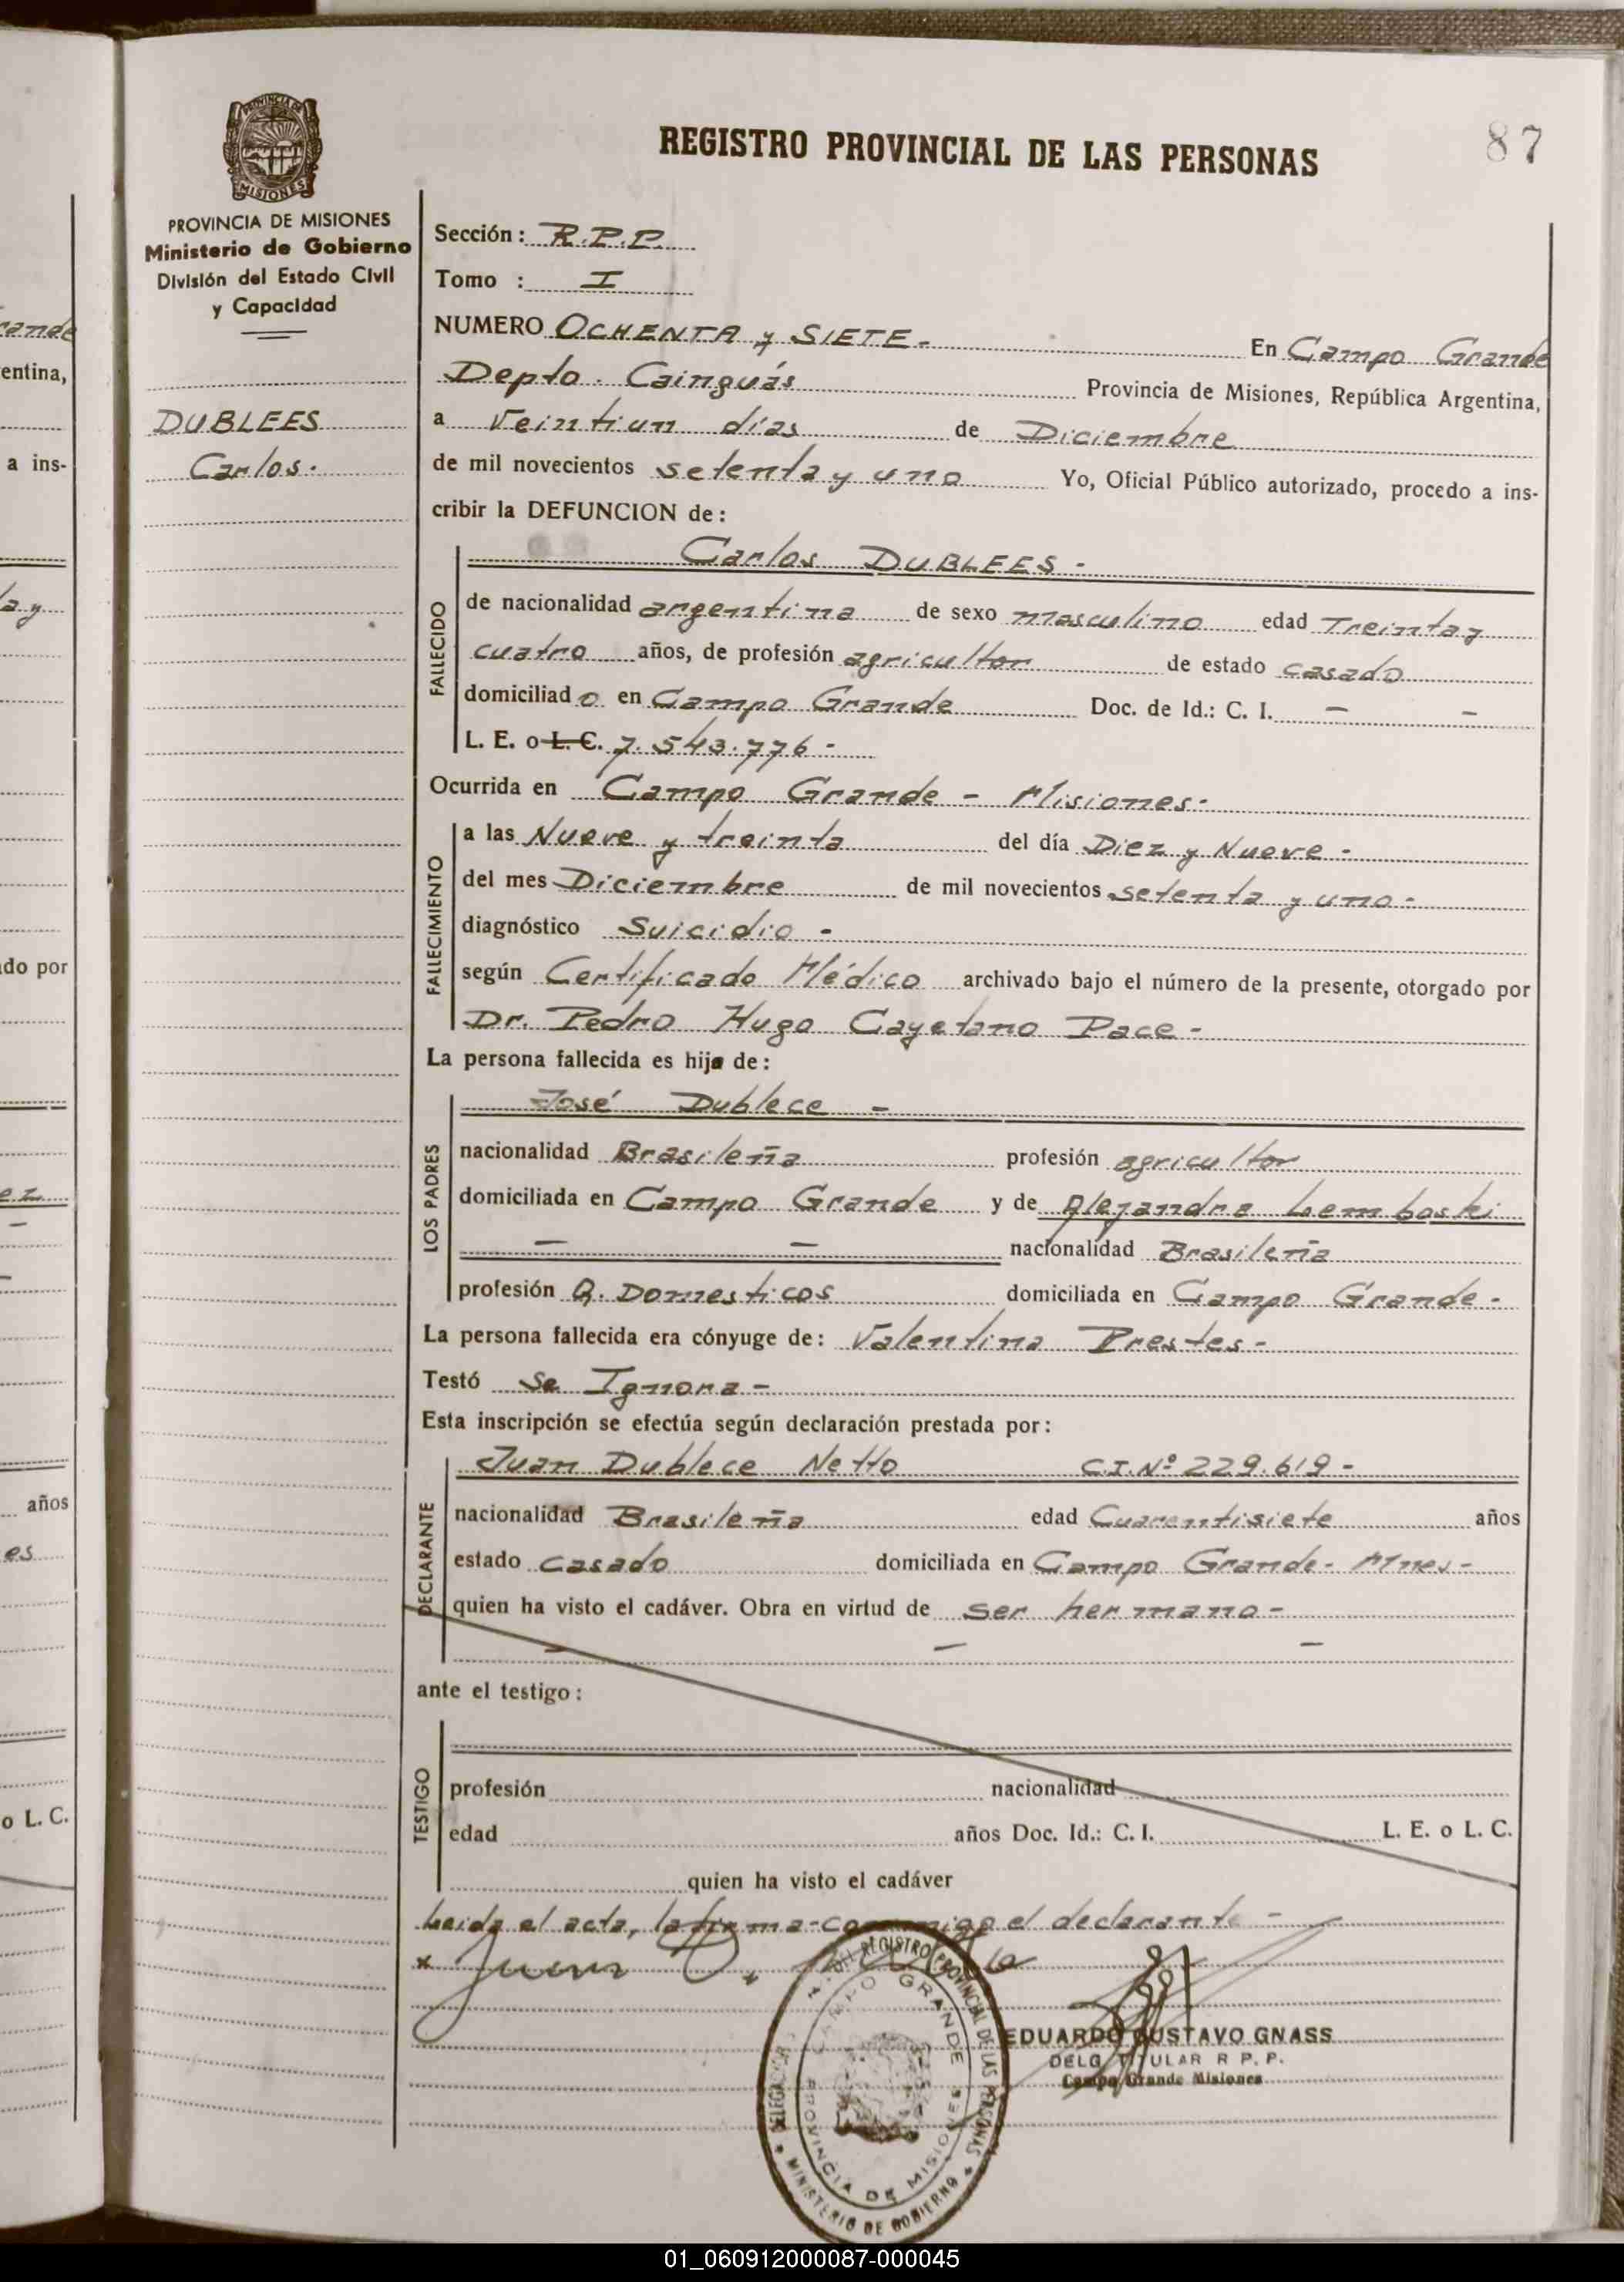 REGISTRO PROVINCIAL DE LAS PERSONAS
87
PROVINCIA DE
MISIONES
PROVINCIA DE MISIONES
Ministerio de Gobierno
División del Estado Civil
y Capacidad
DUBLEES
Carlos.
Sección: R.P.P.
Tomo : I
NUMERO OCHENTA y SIETE - En Campo Grande
Depto. Cainguás Provincia de Misiones, República Argentina,
a Veintiun días de Diciembre
de mil novecientos setenta y uno Yo, Oficial Público autorizado, procedo a ins-
cribir la DEFUNCION de:
FALLECIDO
Carlos DUBLEES -
de nacionalidad argentina de sexo masculino edad Treinta y
cuatro años, de profesión agricultor de estado casado
domiciliado en Campo Grande Doc. de Id.: C. I. - -
L. E. o L. C. 7.543.776 -
Ocurrida en Campo Grande - Misiones.
FALLECIMIENTO
a las Nueve y treinta del día Diez y Nueve -
del mes Diciembre de mil novecientos setenta y uno -
diagnóstico Suicidio -
según Certificado Médico archivado bajo el número de la presente, otorgado por
Dr. Pedro Hugo Cayetano Pace -
La persona fallecida es hijo de:
LOS PADRES
José Dublece -
nacionalidad Brasileña profesión agricultor
domiciliada en Campo Grande y de Alejandra Lemboski
- - nacionalidad Brasileña
profesión Q. Domesticos domiciliada en Campo Grande -
La persona fallecida era cónyuge de: Valentina Prestes -
Testó Se Ignora -
Esta inscripción se efectúa según declaración prestada por:
DECLARANTE
Juan Dublece Netto C.I. Nº 229.619 -
nacionalidad Brasileña edad Cuarentisiete años
estado casado domiciliada en Campo Grande - Mnes -
quien ha visto el cadáver. Obra en virtud de ser hermano -
- - -
ante el testigo:
TESTIGO
profesión nacionalidad
edad años Doc. Id.: C. I. L. E. o L. C.
quien ha visto el cadáver
Leida el acta, la firma conmigo el declarante -
x Juan D.
DELEGACION DEL REGISTRO PROVINCIAL DE LAS PERSONAS
CAMPO GRANDE
PROVINCIA DE MISIONES
MINISTERIO DE GOBIERNO
EDUARDO GUSTAVO GNASS
DELG. TITULAR R P. P.
Campo Grande Misiones
cande
entina,
a ins-
a y
do por
ez
años
es
o L. C.
01_060912000087-000045